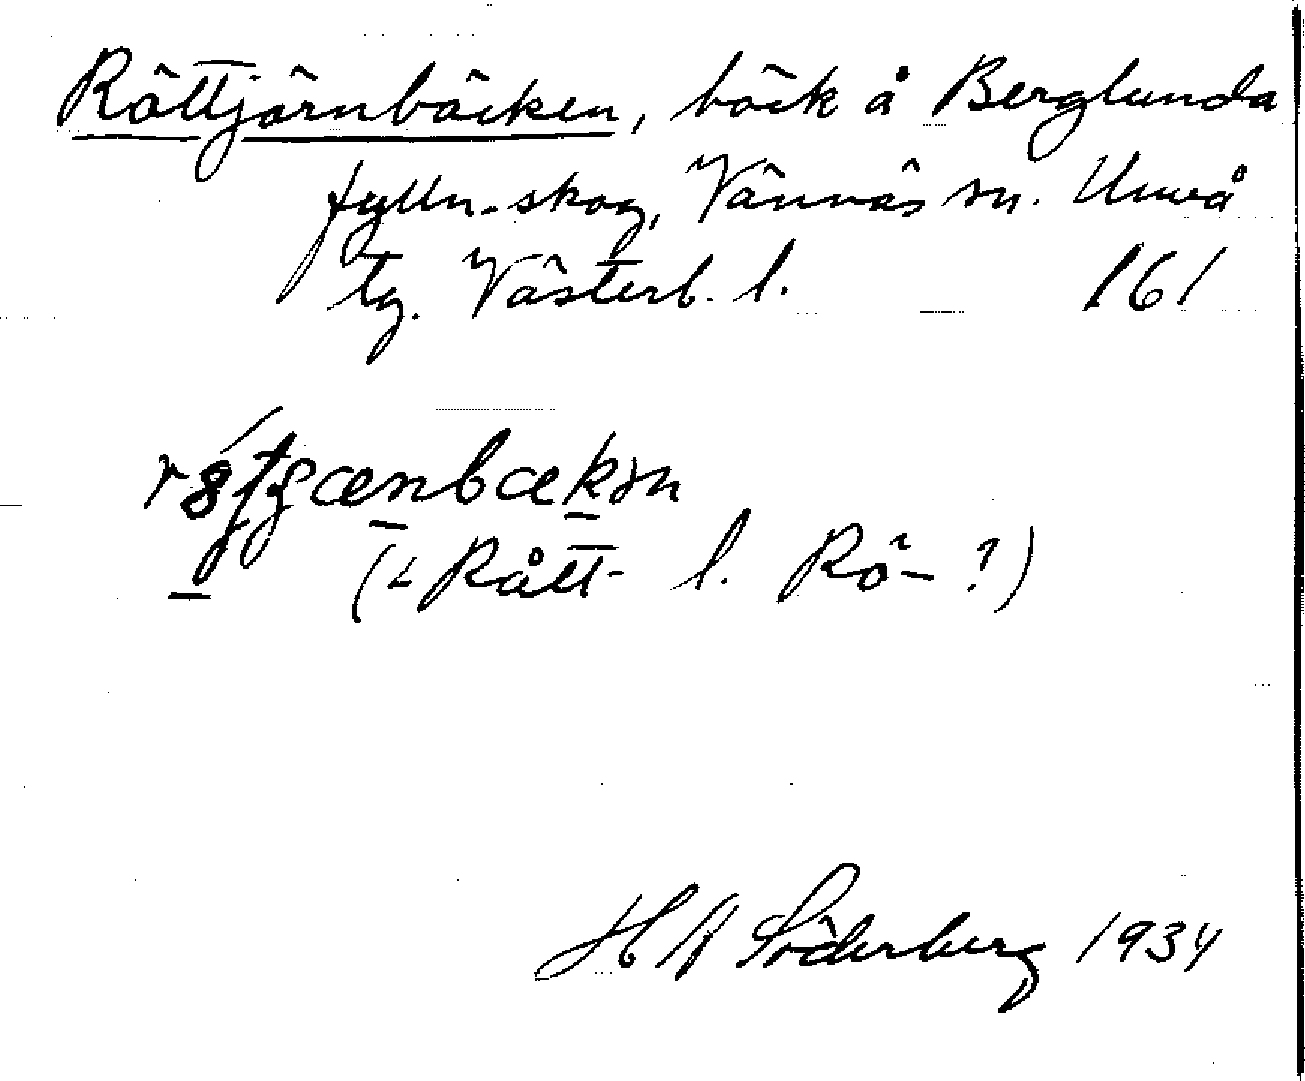 Röttjärnbäcken, bäck å Berglunda
fylln.skog, Vännäs sn. Umeå
tg. Västerb. l. 161
(< Rått- l. Rö- ?)
H A Söderberg 1934